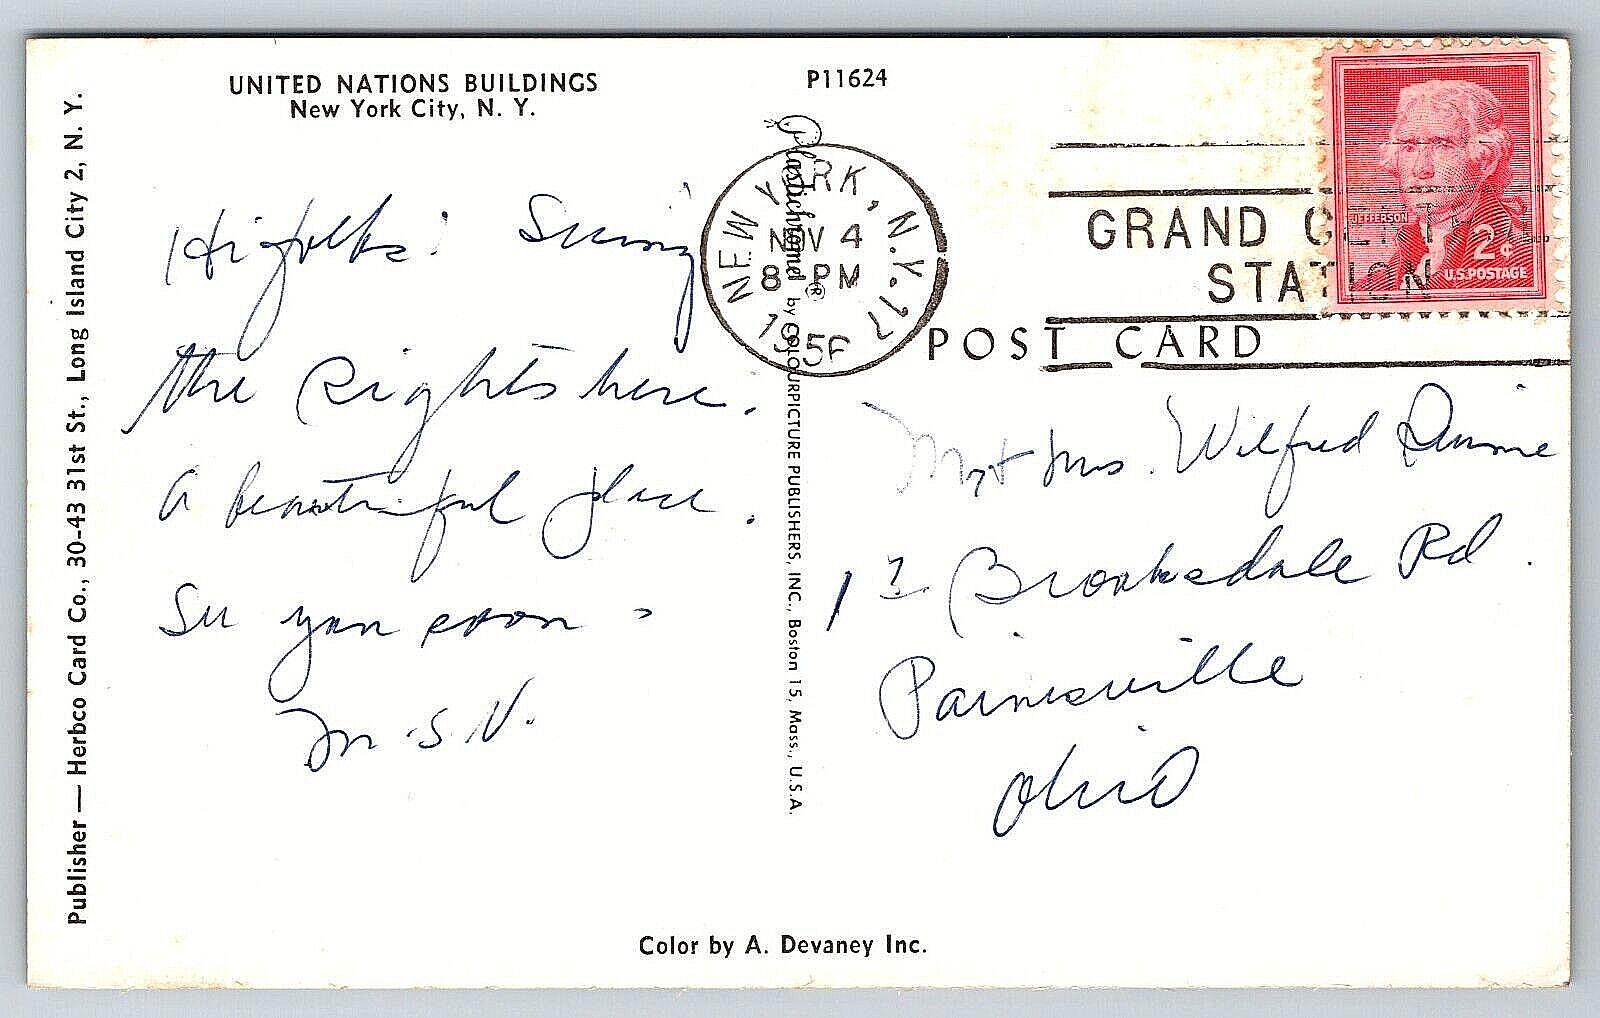 UNITED NATIONS BUILDINGS
New York City, N. Y.
P11624
Publisher — Herbco Card Co., 30-43 31st St., Long Island City 2, N. Y.
Hi folks! Seeing
the Sights here.
A beautiful place.
See you soon -
M.S.N.
Plastichrome® by COLOURPICTURE PUBLISHERS, INC., Boston 15, Mass., U.S.A.
NEW YORK, N.Y. 17
NOV 4
8 PM
1956
GRAND CENTRAL
STATION
JEFFERSON
2¢
U.S. POSTAGE
POST CARD
Mr + Mrs. Wilfred
Brooksdale Rd.
Painesville
Ohio
Color by A. Devaney Inc.